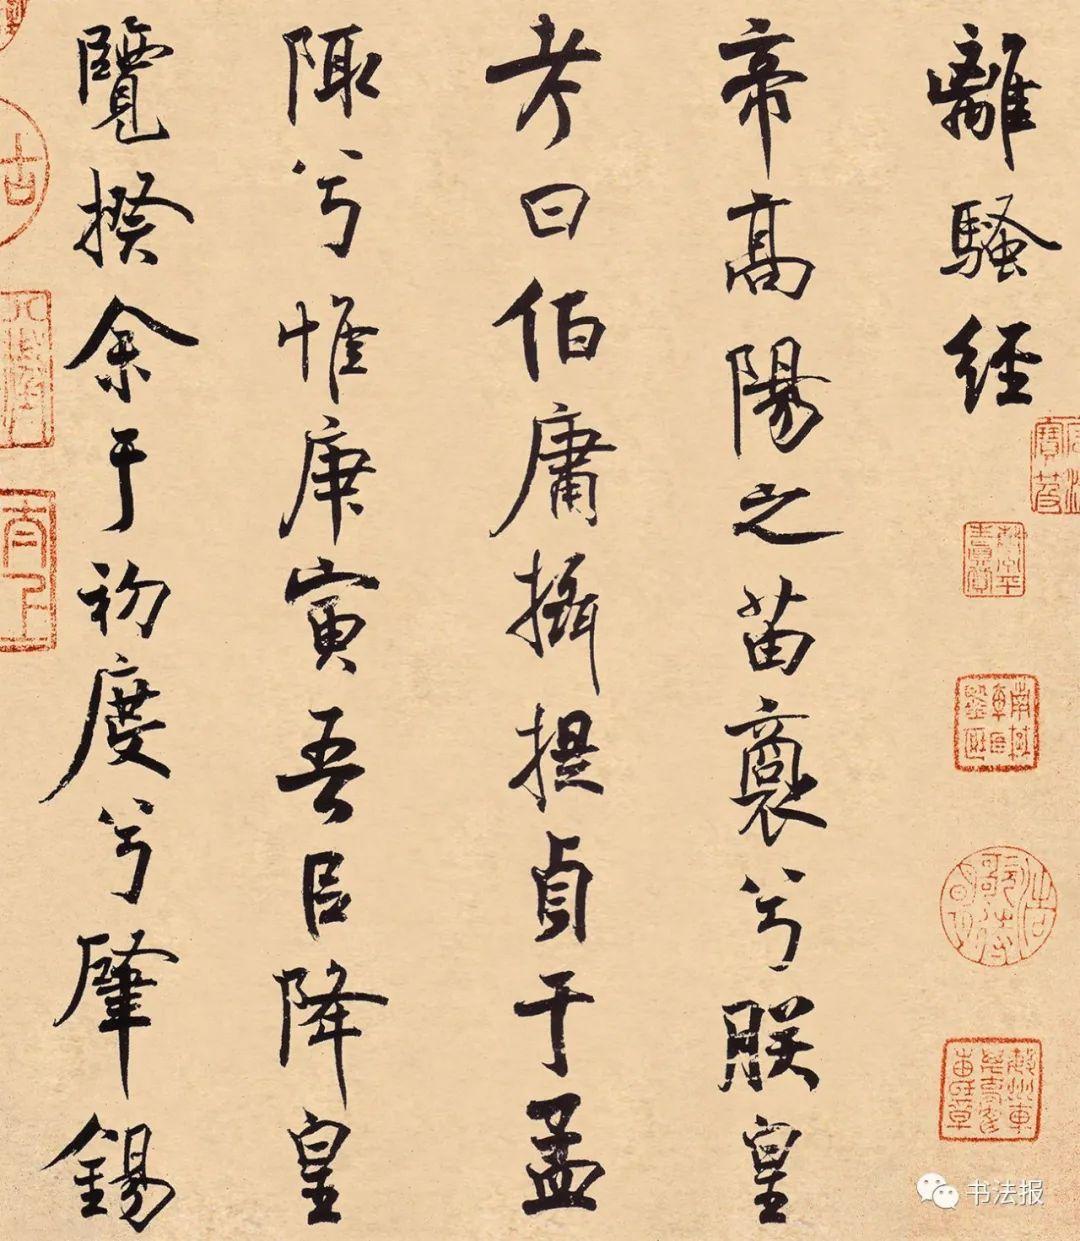 離騷經
帝高陽之苗裔兮朕皇
考曰伯庸攝提貞于孟
陬兮惟庚寅吾㠯降皇
覽揆余于初度兮肇錫
书法报